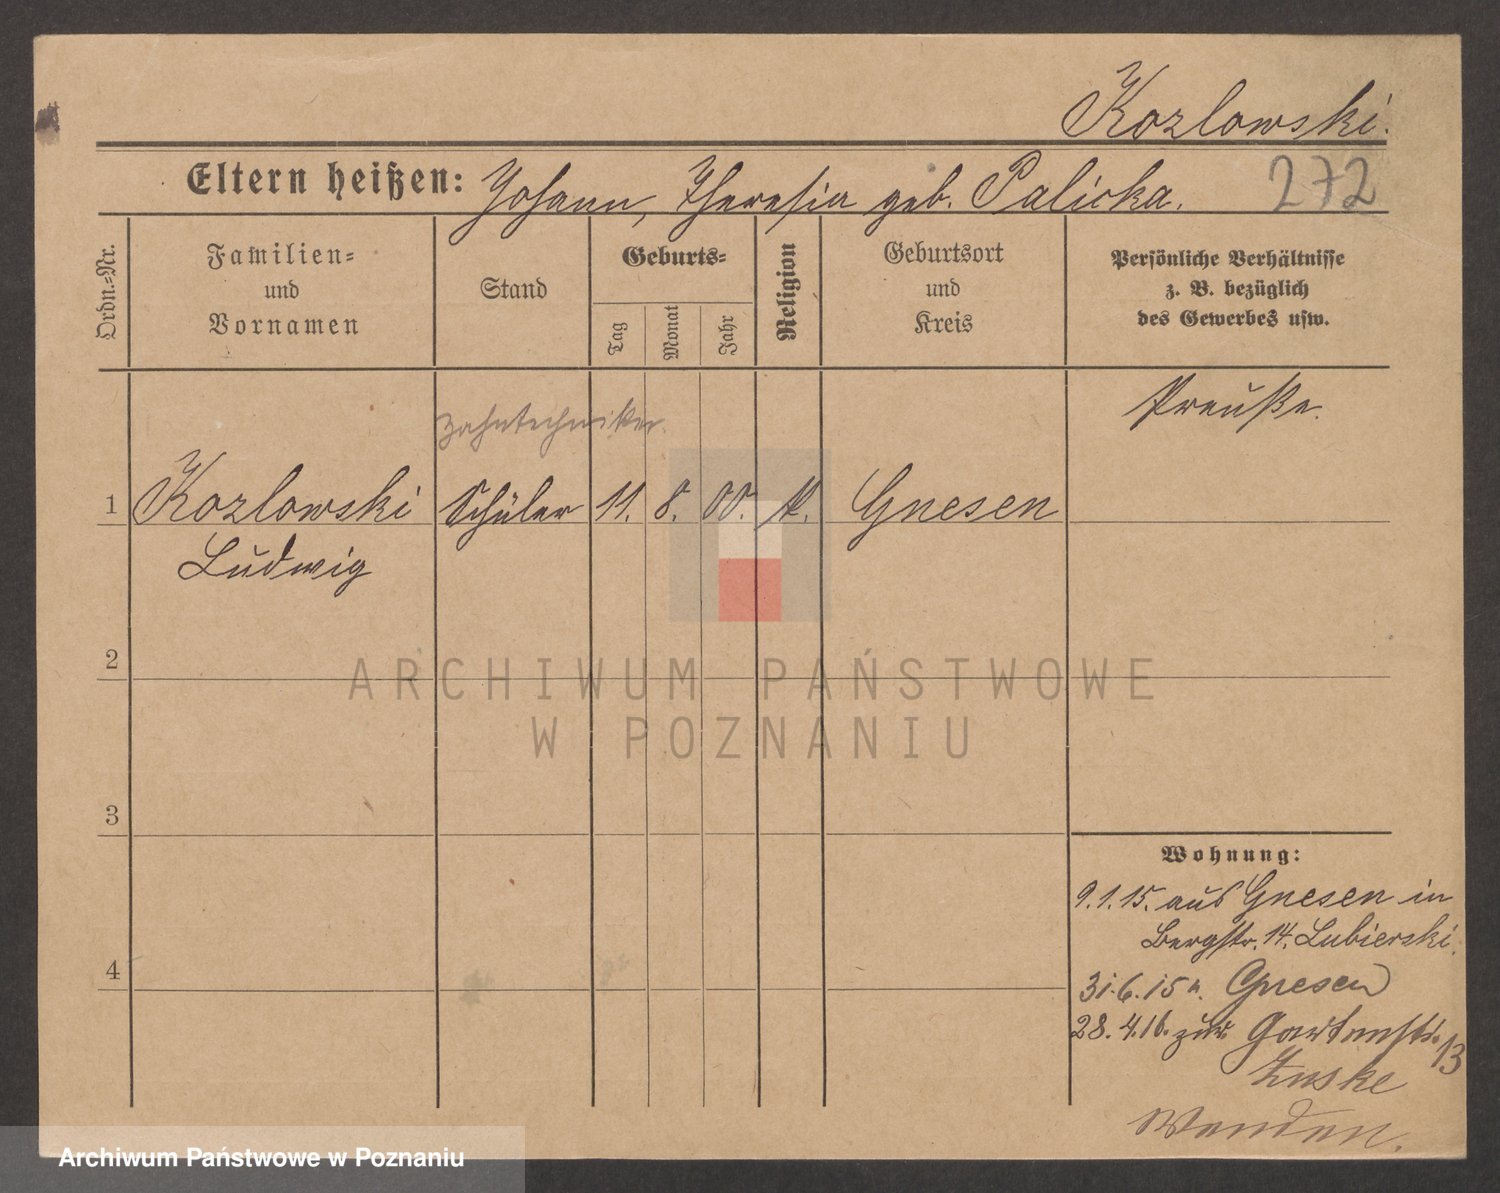 Kozlowski.
Eltern heißen: Johann, Theresia geb. Palicka.
272
Ordn.-Nr.
Familien-
und
Vornamen
Stand
Geburts-
Tag
Monat
Jahr
Religion
Geburtsort
und
Kreis
Persönliche Verhältnisse
z. B. bezüglich
des Gewerbes usw.
Preuße.
Zahntechniker.
1 Kozlowski Schüler 11. 8. 00. k. Gnesen
Ludwig
2
3
4
Wohnung:
9.1.15. aus Gnesen in
Bergstr. 14. Lubierski.
31.6.15 n. Gnesen
28.4.16. zur Gartenstr. 13
Zuske
ARCHIWUM PAŃSTWOWE
W POZNANIU
Archiwum Państwowe w Poznaniu